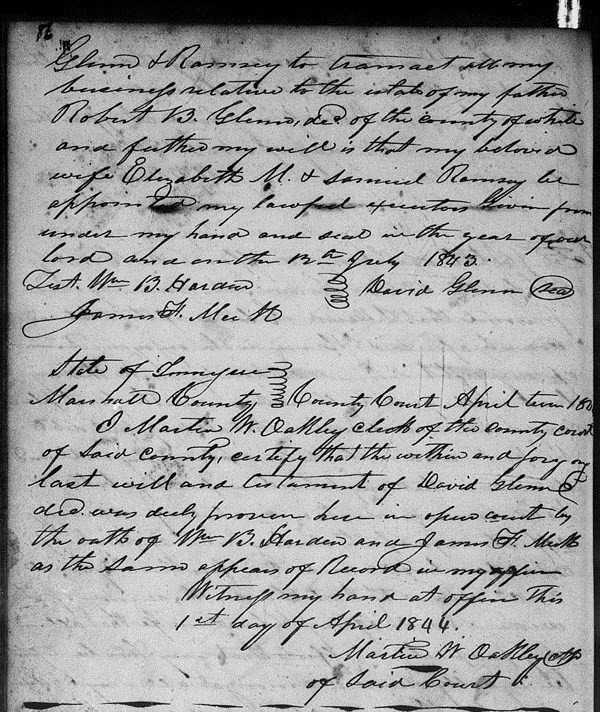 Glenn & Ramsey to transact all my
business relative to the estate of my father
Robert B. Glenn, decd. of the county of White
and further my will is that my beloved
wife Elizabeth M. & Samuel Ramsey be
appointed my lawful executors Given from
under my hand and seal in the year of our
lord and on the 12th July 1843.
Test. Wm B. Harden David Glenn (seal)
James F. Meek
State of Tennessee
Marshall County County Court April term 18
I Martin W. Oakley clerk of the county court
of Said county, certify that the within and forgoing
last will and testament of David Glenn
decd. was duly proven here in open court by
the oath of Wm B. Harden and James F. Meek
as the same appears of Record in my office
Witness my hand at office this
1st day of April 1844.
Martin W Oakley clk
of Said Court